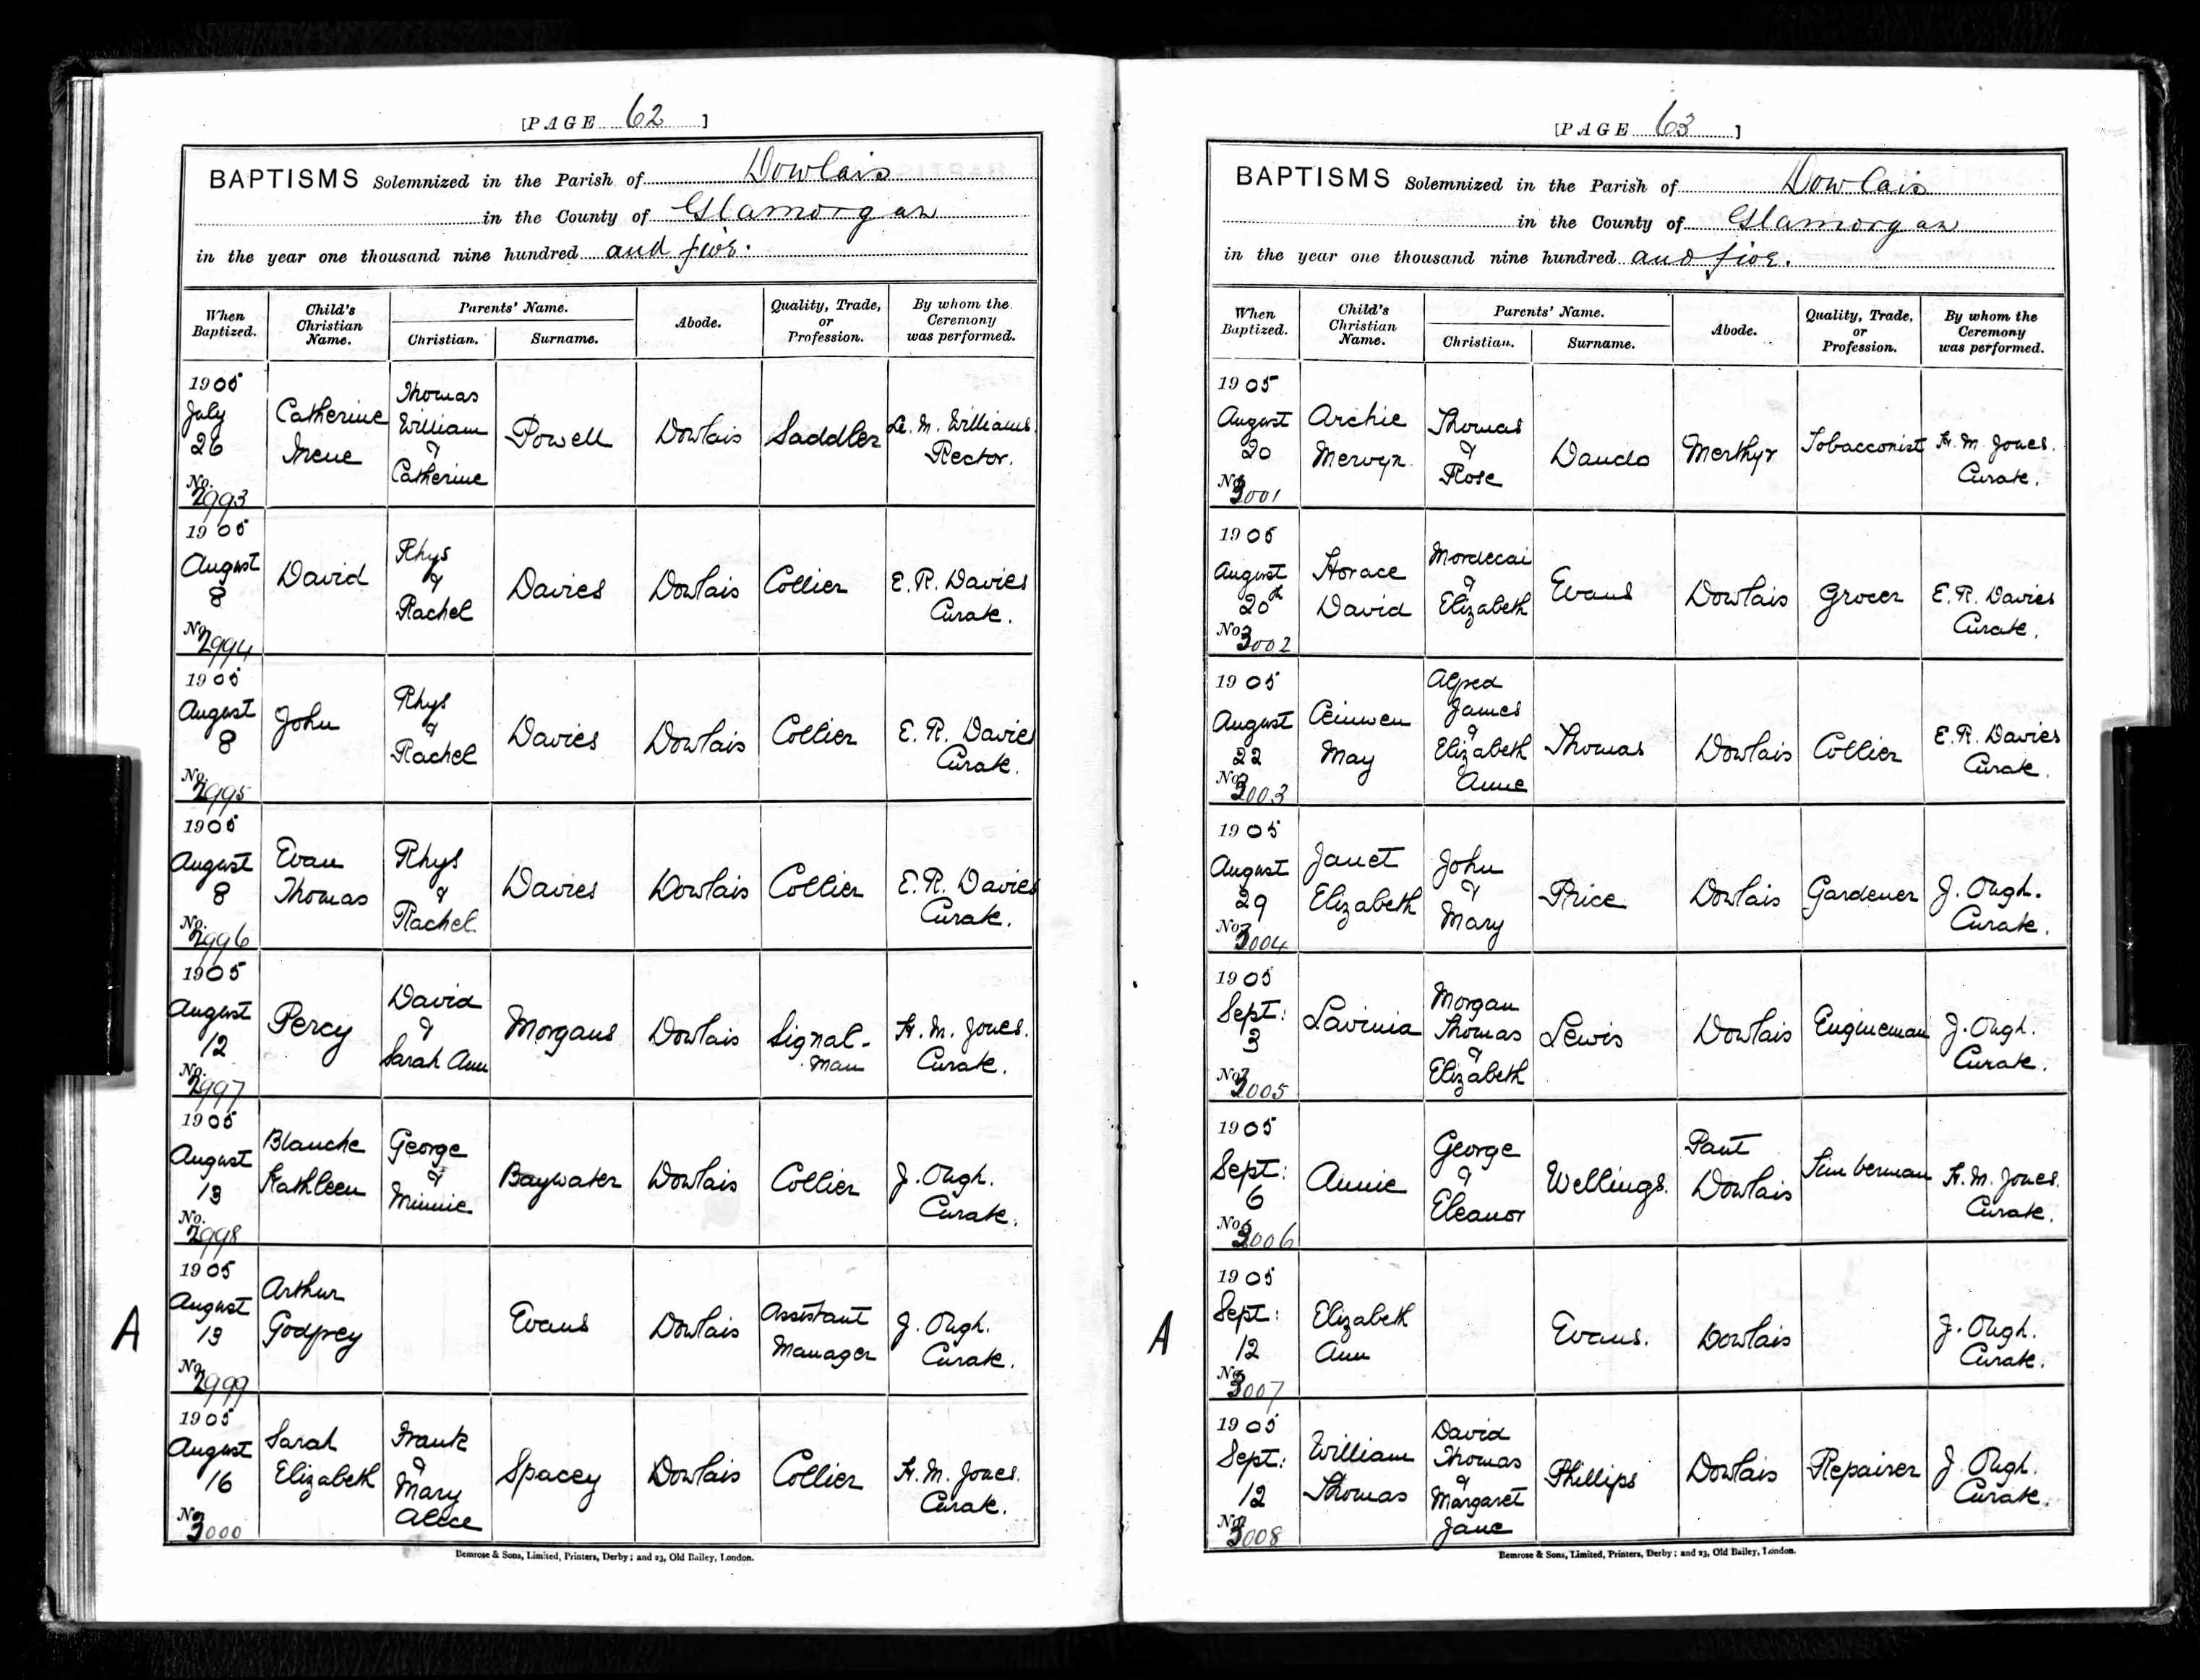 [PAGE 62]
BAPTISMS Solemnized in the Parish of Dowlais
in the County of Glamorgan
in the year one thousand nine hundred and five.
When Baptized. Child's Christian Name. Parents' Name. Christian. Surname. Abode. Quality, Trade, or Profession. By whom the Ceremony was performed.
1905 July 26 No. 2993 Catherine Irene Thomas William & Catherine Powell Dowlais Saddler Ll. M. Williams. Rector.
1905 August 8 No. 2994 David Rhys & Rachel Davies Dowlais Collier E. R. Davies Curate.
1905 August 8 No. 2995 John Rhys & Rachel Davies Dowlais Collier E. R. Davies Curate.
1905 August 8 No. 2996 Evan Thomas Rhys & Rachel Davies Dowlais Collier E. R. Davies Curate.
1905 August 12 No. 2997 Percy David & Sarah Ann Morgans Dowlais Signal-man H. M. Jones. Curate.
1905 August 13 No. 2998 Blanche Kathleen George & Minnie Baywater Dowlais Collier J. Ough. Curate.
A
1905 August 13 No. 2999 Arthur Godfrey Evans Dowlais Assistant Manager J. Ough. Curate.
1905 August 16 No. 3000 Sarah Elizabeth Frank & Mary Alice Spacey Dowlais Collier H. M. Jones. Curate.
Bemrose & Sons, Limited, Printers, Derby; and 23, Old Bailey, London.
[PAGE 63]
BAPTISMS Solemnized in the Parish of Dowlais
in the County of Glamorgan
in the year one thousand nine hundred and five.
When Baptized. Child's Christian Name. Parents' Name. Christian. Surname. Abode. Quality, Trade, or Profession. By whom the Ceremony was performed.
1905 August 20 No. 3001 Archie Mervyn Thomas & Rose Dando Merthyr Tobacconist H. M. Jones. Curate.
1905 August 20th No. 3002 Horace David Mordecai & Elizabeth Evans Dowlais Grocer E. R. Davies Curate.
1905 August 22 No. 3003 Ceinwen May Alfred James & Elizabeth Anne Thomas Dowlais Collier E. R. Davies Curate.
1905 August 29 No. 3004 Janet Elizabeth John & Mary Price Dowlais Gardener J. Ough. Curate.
1905 Sept: 3 No. 3005 Lavinia Morgan Thomas & Elizabeth Lewis Dowlais Engineman J. Ough. Curate.
1905 Sept: 6 No. 3006 Annie George & Eleanor Wellings. Pant Dowlais Timberman H. M. Jones. Curate.
A
1905 Sept: 12 No. 3007 Elizabeth Ann Evans. Dowlais J. Ough. Curate.
1905 Sept: 12 No. 3008 William Thomas David Thomas & Margaret Jane Phillips Dowlais Repairer J. Ough. Curate.
Bemrose & Sons, Limited, Printers, Derby; and 23, Old Bailey, London.